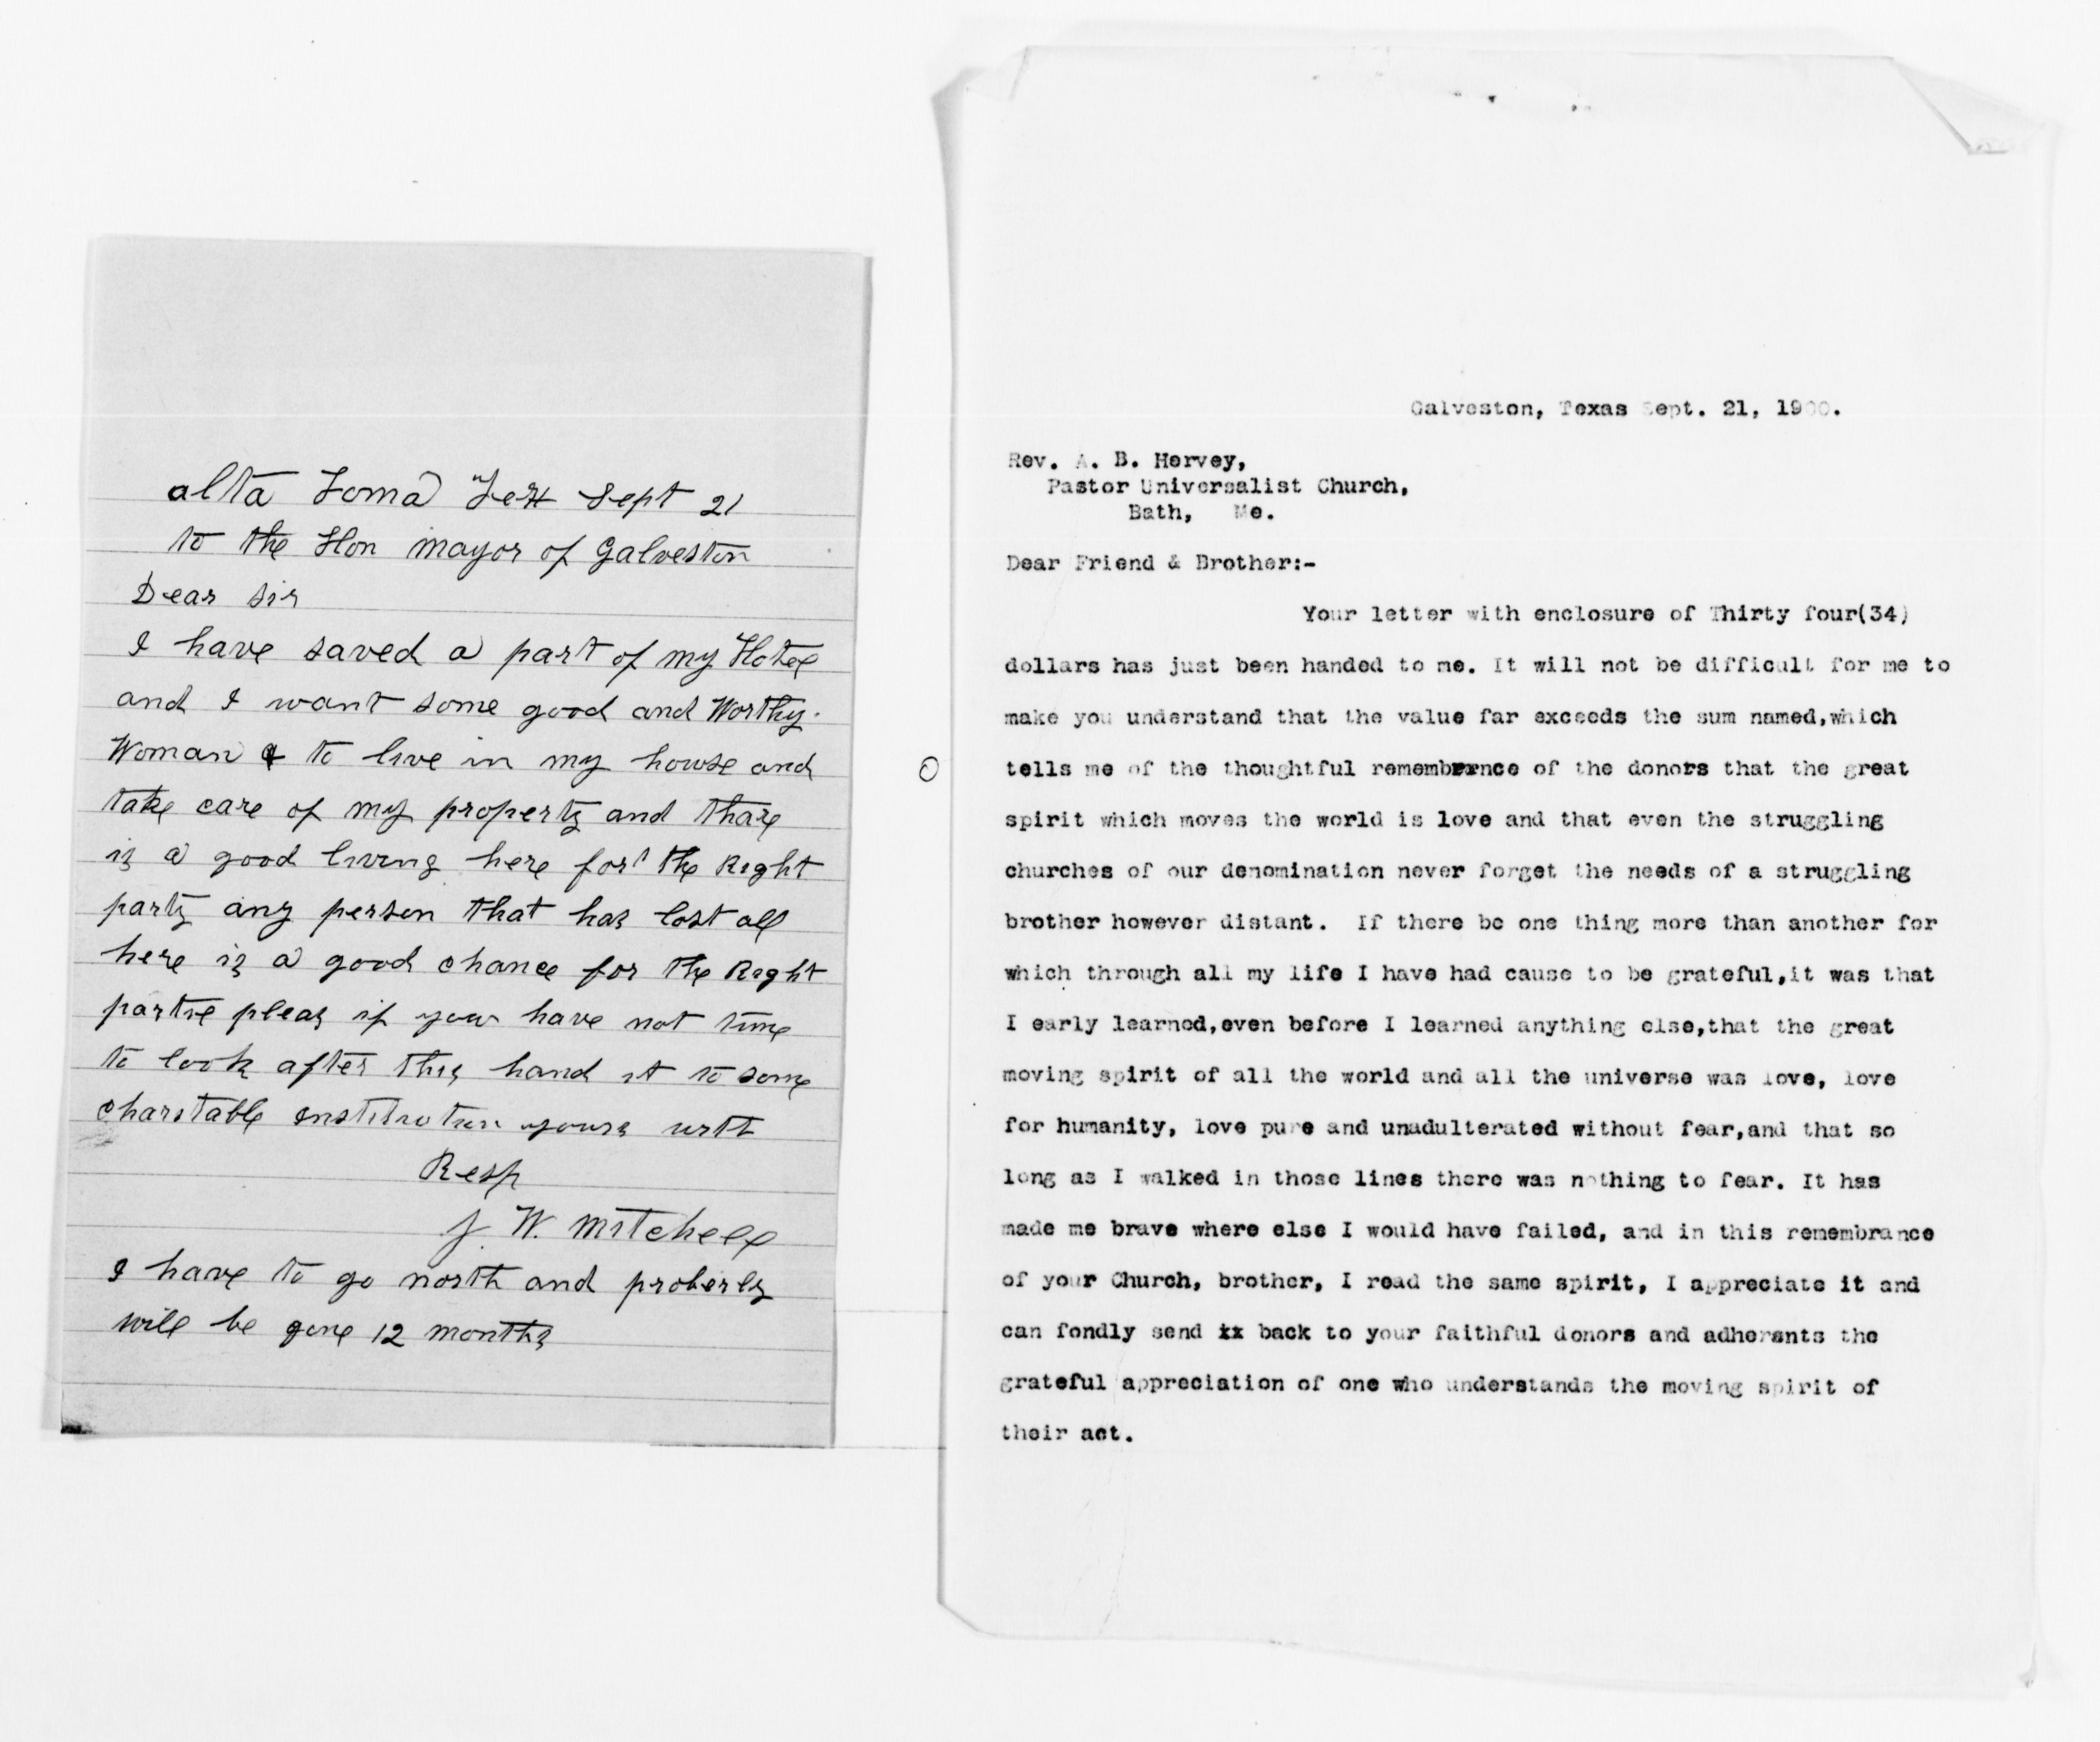 alta Loma Tex Sept 21
to the Hon mayor of Galveston
Dear sir
I have saved a part of my Hotel
and I want some good and Worthy
Woman to live in my house and
take care of my property and thare
is a good living here for the Right
party any person that has lost all
here is a good chance for the Right
partie pleas if you have not time
to look after this hand it to some
charitable institution yours with
Resp
J. W. Mitchell
I have to go north and proberly
will be gone 12 months
Galveston, Texas Sept. 21, 1900.
Rev. A. B. Hervey,
Pastor Universalist Church,
Bath, Me.
Dear Friend & Brother:-
Your letter with enclosure of Thirty four(34)
dollars has just been handed to me. It will not be difficult for me to
make you understand that the value far exceeds the sum named,which
tells me of the thoughtful remembrxnce of the donors that the great
spirit which moves the world is love and that even the struggling
churches of our denomination never forget the needs of a struggling
brother however distant. If there be one thing more than another for
which through all my life I have had cause to be grateful,it was that
I early learned,even before I learned anything else,that the great
moving spirit of all the world and all the universe was love, love
for humanity, love pure and unadulterated without fear,and that so
long as I walked in those lines there was nothing to fear. It has
made me brave where else I would have failed, and in this remembrance
of your Church, brother, I read the same spirit, I appreciate it and
can fondly send xx back to your faithful donors and adherents the
grateful appreciation of one who understands the moving spirit of
their act.